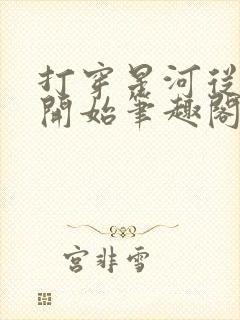 打穿星河從
開始筆趣閣
宮非雪